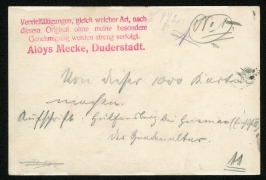 Vervielfältigungen, gleich welcher Art, nach
diesem Original ohne meine besondere
Genehmigung werden streng verfolgt.
Aloys Mecke, Duderstadt.
Von dieser 1000 Karten
machen.
Aufschrift
der Gnadenaltar.
11